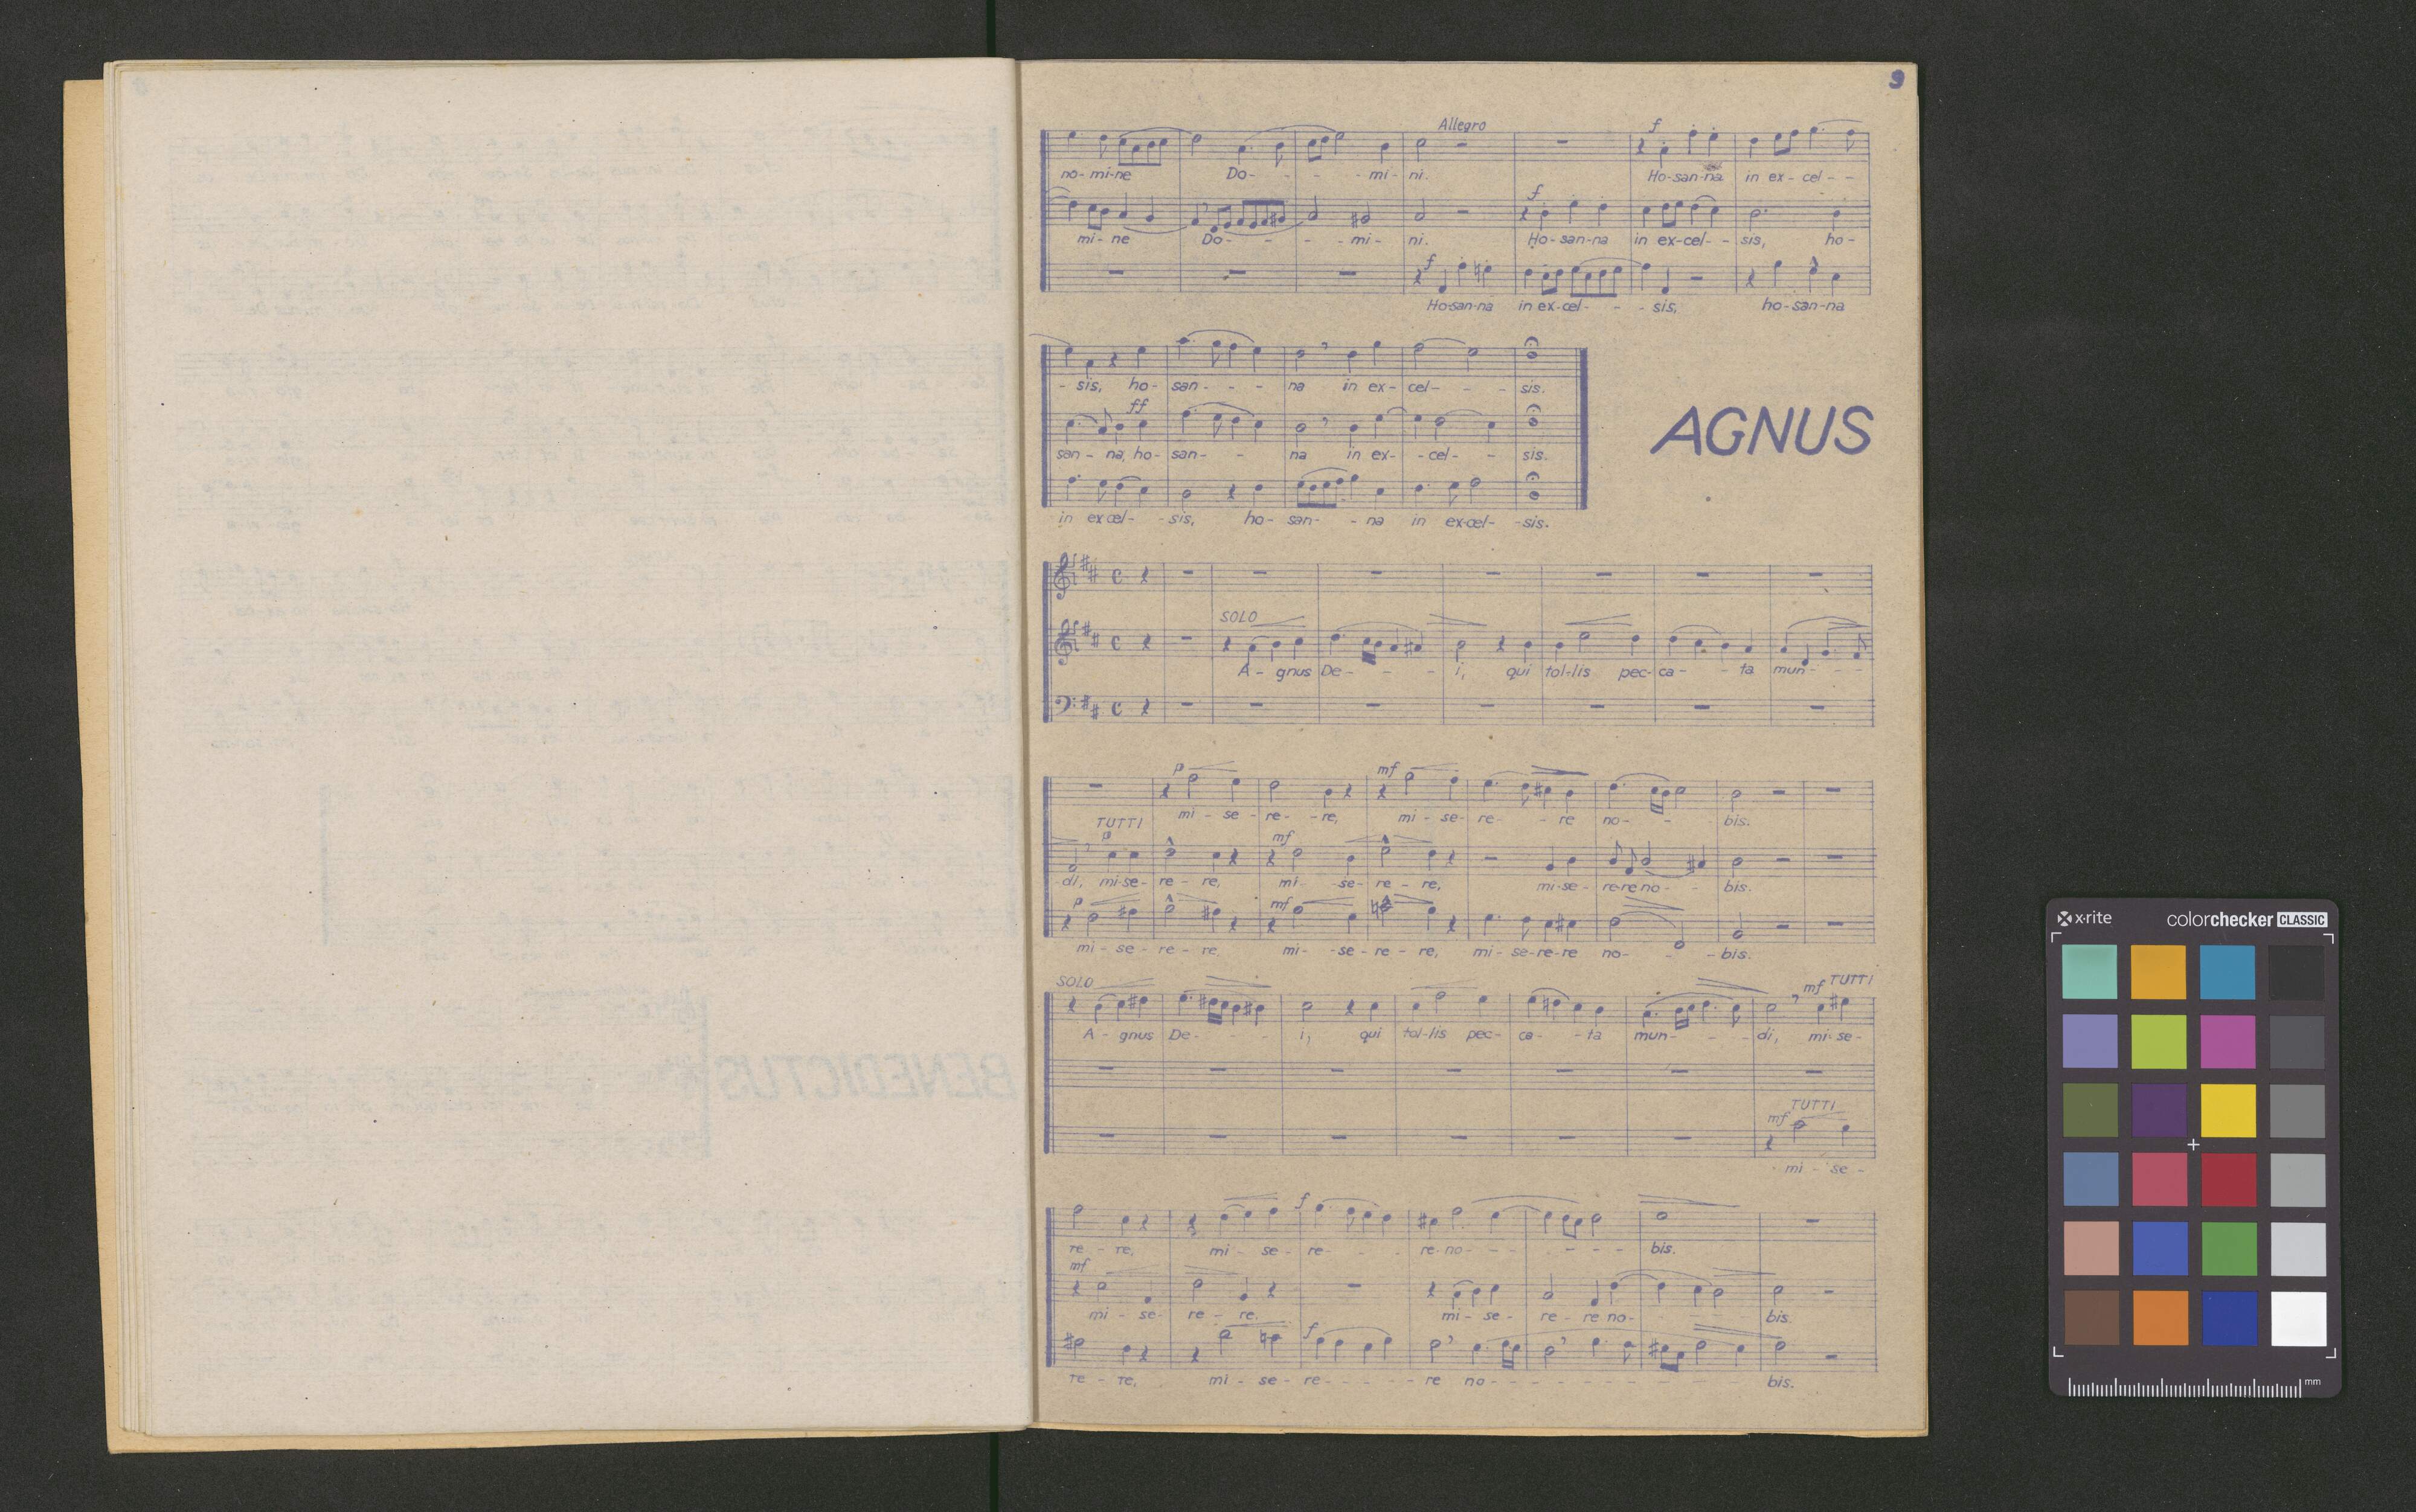 9
Allegro
f
no-mi-ne Do- - - -mi- ni. Ho-san-na in ex-cel- -
f
mi-ne Do- - - -mi- ni. Ho-san-na in ex-cel- -sis, ho-
f
Ho-san-na in ex-cel- - -sis, ho-san-na
-sis, ho- san- - - na in ex- cel- - - sis.
ff
san-na, ho- san- - na in ex- -cel- - sis.
in excel- -sis, ho- san- -na in ex-cel- -sis.
AGNUS
SOLO
A- gnus De- - - i, qui tol-lis pec-ca- -ta mun- - -
p mf
mi-se-re- -re, mi-se-re- -re no- - bis.
TUTTI
p mf
-di, mi-se-re-re, mi- -se-re-re, mi-se-re-re no- - bis.
p mf
mi-se-re-re, mi- -se-re-re, mi-se-re-re no- - -bis.
SOLO mf TUTTI
A- gnus De- - - i, qui tol-lis pec-ca- -ta mun- - -di, mi-se-
TUTTI
mf
mi-se-
f
re-re, mi-se-re- - - re no- - - - - - bis.
mf
mi-se-re-re. mi-se-re-re no- bis.
f
re-re, mi-se-re- - - -re no- - - - - - - - bis.
x·rite colorchecker CLASSIC
mm